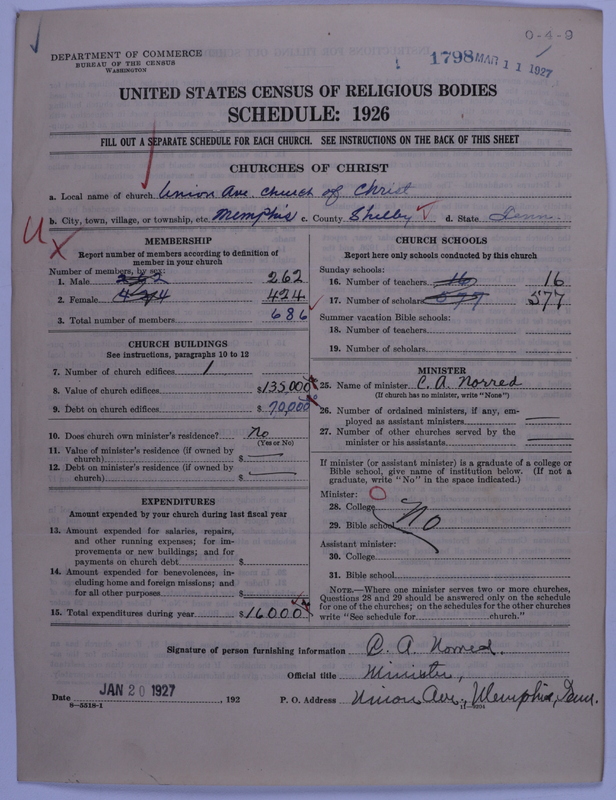 0-4-9
DEPARTMENT OF COMMERCE
BUREAU OF THE CENSUS
WASHINGTON
1798 MAR 11 1927
UNITED STATES CENSUS OF RELIGIOUS BODIES
SCHEDULE: 1926
FILL OUT A SEPARATE SCHEDULE FOR EACH CHURCH. SEE INSTRUCTIONS ON THE BACK OF THIS SHEET
CHURCHES OF CHRIST
a. Local name of church Union Ave Church of Christ
b. City, town, village, or township, etc. Memphis c. County Shelby d. State Tenn.
MEMBERSHIP
Report number of members according to definition of
member in your church
Number of members, by sex:
1. Male 262 262
2. Female 424 424
3. Total number of members 686
CHURCH BUILDINGS
See instructions, paragraphs 10 to 12
7. Number of church edifices 1
8. Value of church edifices $135,000
9. Debt on church edifices $ 70,000
10. Does church own minister's residence? No
(Yes or No)
11. Value of minister's residence (if owned by
church) $
12. Debt on minister's residence (if owned by
church) $
EXPENDITURES
Amount expended by your church during last fiscal year
13. Amount expended for salaries, repairs,
and other running expenses; for im-
provements or new buildings; and for
payments on church debt $
14. Amount expended for benevolences, in-
cluding home and foreign missions; and
for all other purposes $
15. Total expenditures during year $16000
CHURCH SCHOOLS
Report here only schools conducted by this church
Sunday schools:
16. Number of teachers 16 16
17. Number of scholars 577 577
Summer vacation Bible schools:
18. Number of teachers
19. Number of scholars
MINISTER
25. Name of minister C. A. Norred
(If church has no minister, write "None")
26. Number of ordained ministers, if any, em-
ployed as assistant ministers
27. Number of other churches served by the
minister or his assistants
If minister (or assistant minister) is a graduate of a college or
Bible school, give name of institution below. (If not a
graduate, write "No" in the space indicated.)
Minister:
28. College
29. Bible school No
Assistant minister:
30. College
31. Bible school
NOTE.—Where one minister serves two or more churches,
Questions 28 and 29 should be answered only on the schedule
for one of the churches; on the schedules for the other churches
write "See schedule for church."
Signature of person furnishing information C. A. Norred.
Official title Minister,
Date JAN 20 1927, 192 P. O. Address Union Ave., Memphis, Tenn.
8-5518-1